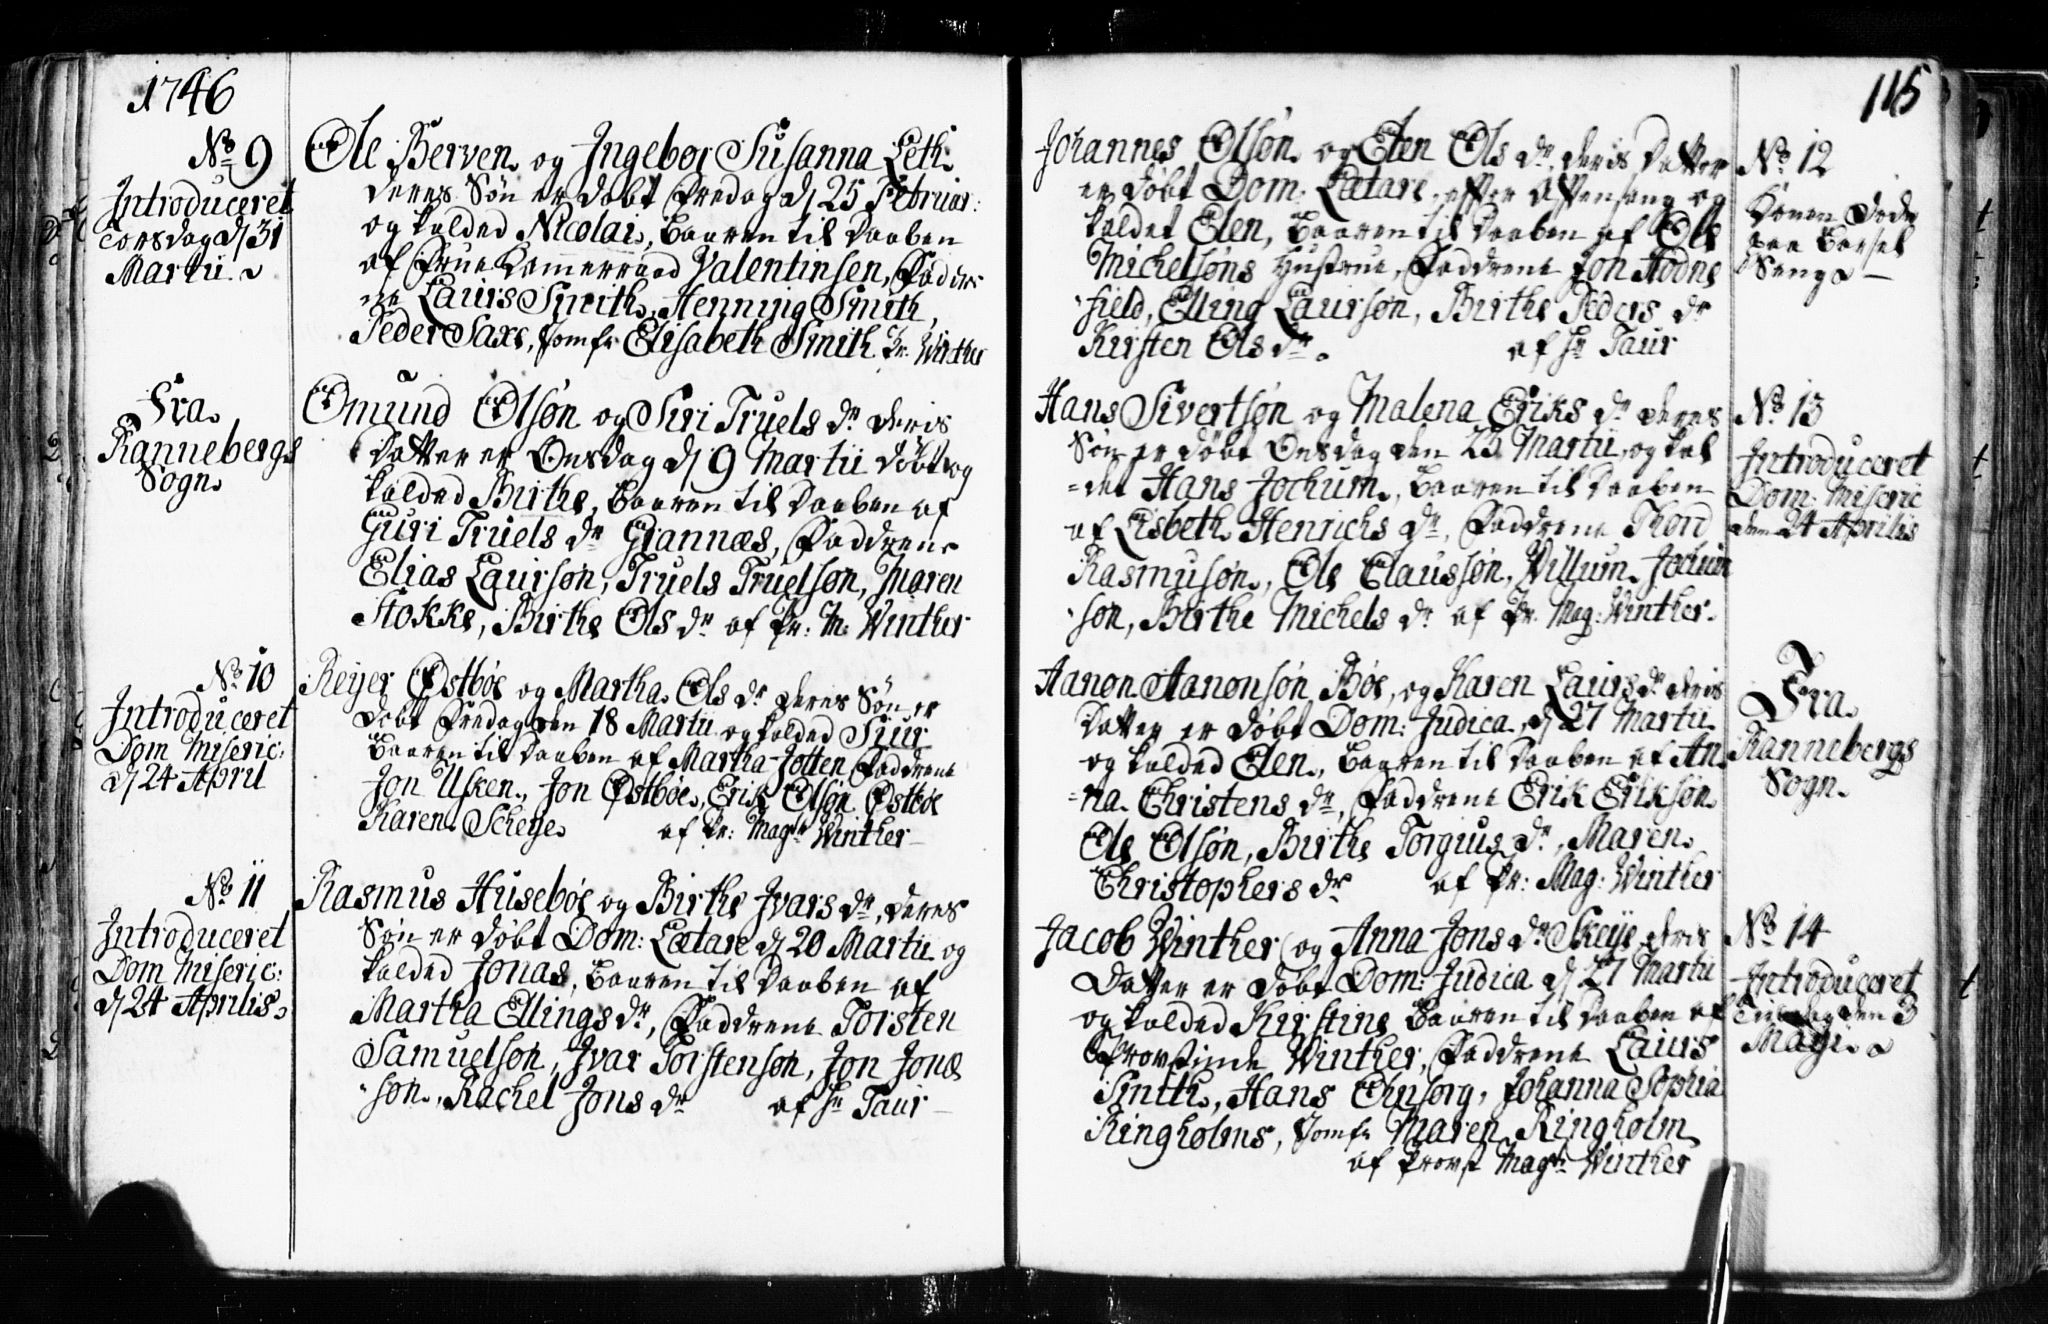 1746
No 9
Introduceret
Torsdag d 31
Martii
Ole Berven og Ingebor Susanna Leth
deres Søn er døbt Fredag d 25 Februar:
og kalded Nicolai, baaren til Daaben
af Frue Kammerraad Valentinsen, Faddre
ne Laurs Smith, Henning Smith,
Peder Saxe, Jomfr Elisabeth Smith Pr. Winther
Fra
Rannebergs
Sogn
Omund Olsøn og Siri Truels dr deris
Datter er Onsdag d 9 Martii døbt og
kalded Birthe, baaren til Daaben af
Guri Truels dr Grannæs, Faddrene
Elias Laursøn, Truels Truelsøn, Maren
Stokke, Birthe Ols dr af Pr: M: Winther
No 10
Introduceret
Dom Miseric:
d 24 April
Reyer Østbøe og Martha Ols dr deres Søn er
døbt Fredag den 18 Martii og kalded Siur
baaren til Daaben af Martha Jotten Faddrene
Jon Usken, Jon Østbøe, Erik Olsøn Østbøe
Karen Scheye af Pr: Magr Winther
No 11
Introduceret
Dom Miseric:
d 24 Aprilis
Rasmus Husebøe og Birthe Ivars dr, deres
Søn er døbt Dom: Lætare d 20 Martii og
kalded Jonas, baaren til Daaben af
Martha Ellings dr, Faddrene Torsten
Samuelsøn, Ivar Torstensøn, Jon Jonæ
søn, Rachel Jons dr af Hr Taur
115
Johannes Olsøn og Elen Ols dr deris Datter
er døbt Dom: Lætare, efter Aftensang og
kaldet Elen, baaren til Daaben af Ole
Michelsøns Hustrue, Faddrene Jon Hodne
field, Elling Laursøn, Birthe Peders dr
Kirsten Ols dr. af Hr Taur
No 12
Konen døde
paa Barsel
Seng
Hans Sivertsøn og Malena Eriks dr deres
Søn er døbt Onsdag den 23 Martii, og kal
det Hans Jochum, baaren til Daaben
af Lisbeth Henrichs dr, Faddrene Thord
Rasmusøn, Ole Claussøn, Willum Jochum
søn, Birthe Michels dr af Pr. Mag: Winther.
No 13
Introduceret
Dom: Miseric
den 24 Aprilis
Aanon Aanonsøn Bøe, og Karen Laurs dr deris
Datter er døbt Dom: Judica, d 27 Martii
og kalded Elen, baaren til Daaben af An
na Christens dr, Faddrene Erik Eriksøn
Ole Olsøn, Birthe Torgius dr, Maren
Christophers dr af Pr: Mag: Winther
Fra
Rannebergs
Sogn
Jacob Winther og Anna Jons dr Skeije deris
Datter er døbt Dom: Judica d 27 Martii
og kalded Kirstine baaren til Daaben af
Provstinde Winther, Faddrene Laurs
Smith, Hans Ehnsorg, Johanna Sophia
Ringholms, Jomfr Maren Ringholm
af Provst Magr Winther
No 14
Introduceret
Tirsdag den 3
Maji